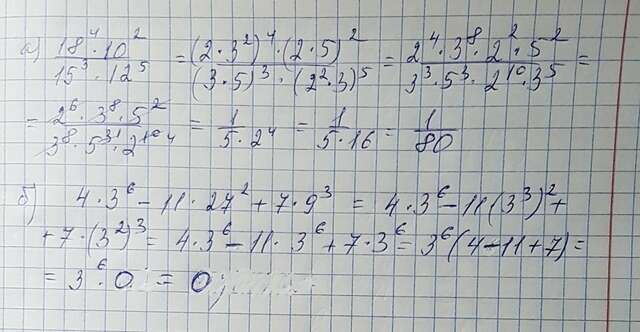 а) 18⁴·10² / 15³·12⁵ = (2·3²)⁴·(2·5)² / (3·5)³·(2²·3)⁵ = 2⁴·3⁸·2²·5² / 3³·5³·2¹⁰·3⁵ =
= 2⁶·3⁸·5² / 3⁸·5³·2¹⁰ = 1 / 5·2⁴ = 1 / 5·16 = 1 / 80
б) 4·3⁶ - 11·27² + 7·9³ = 4·3⁶ - 11(3³)² +
+ 7·(3²)³ = 4·3⁶ - 11·3⁶ + 7·3⁶ = 3⁶(4-11+7) =
= 3⁶·0 = 0